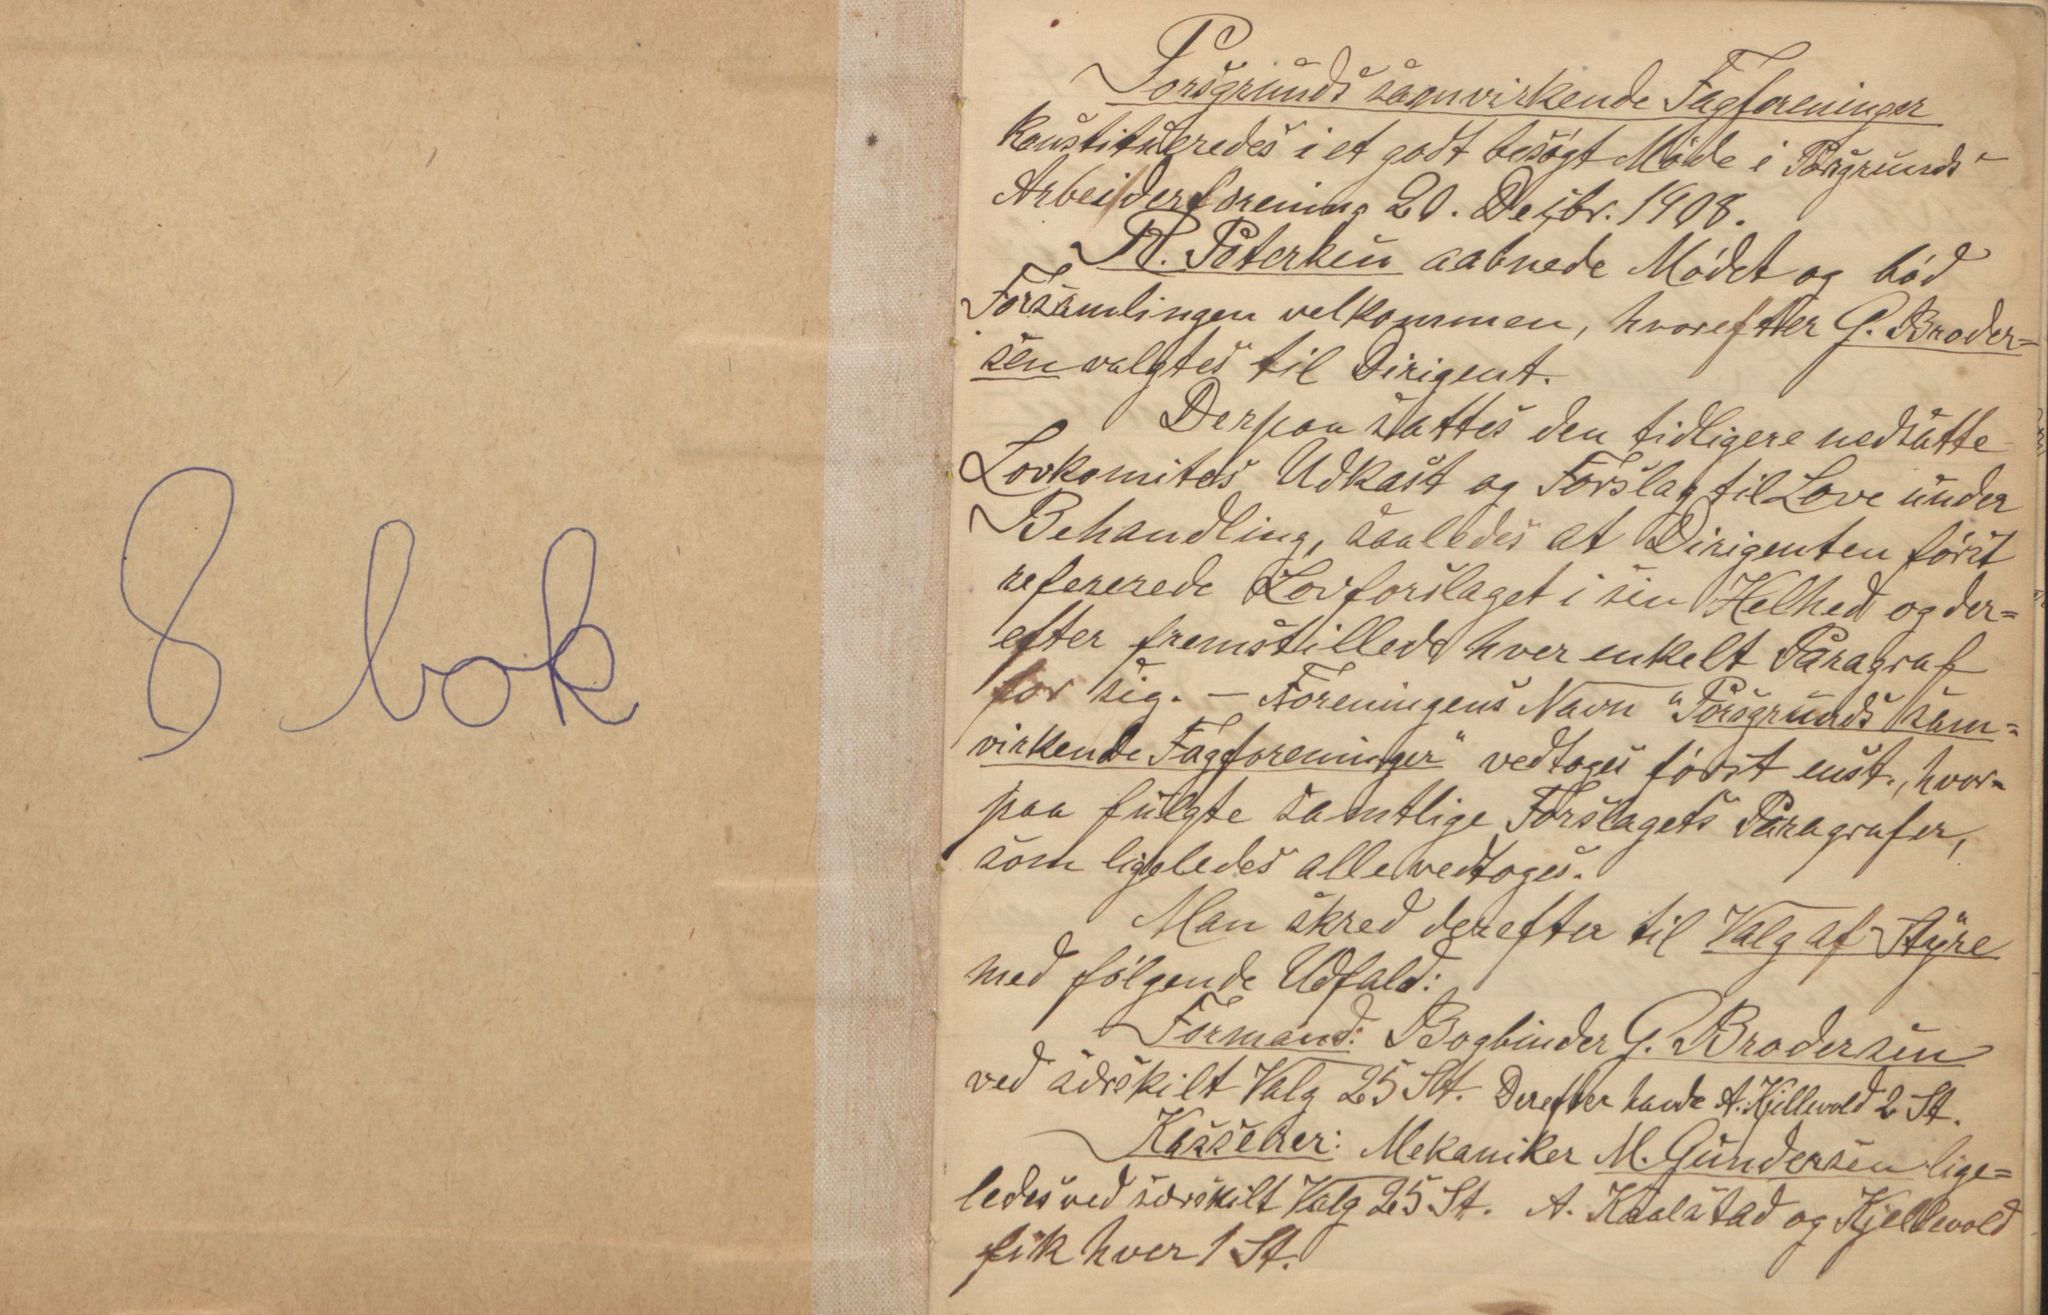 8 bok
Porsgrunds samvirkende Fagforeninger
konstitueredes i et godt besøgt Møde i Porsgrunds
Arbeiderforening 20. Decbr. 1908.
P. Peterson aabnede Mødet og bød
Forsamlingen velkommen, hvorefter G. Broder=
sen valgtes til Dirigent.
Derpaa sattes den tidligere nedsatte
Lovkomites Udkast og Forslag til Love under
Behandling, saaledes at Dirigenten først
refererede Lovforslaget i sin Helhed og der=
efter fremstillede hver enkelt Paragraf
for sig. — Foreningens Navn "Porsgrunds sam=
virkende Fagforeninger" vedtoges først enst., hvor=
paa fulgte samtlige Forslagets Paragrafer,
som ligeledes alle vedtoges.
Man skred derefter til Valg af Styre
med følgende Udfald:
Formand: Bogbinder G. Brodersen
ved særskilt Valg 25 St. Derefter havde A. Kjellevold 2 St.
Kasserer: Mekaniker M. Gundersen lige=
ledes ved særskilt Valg 25 St. A. Kaalstad og Kjellevold
fik hver 1 St.